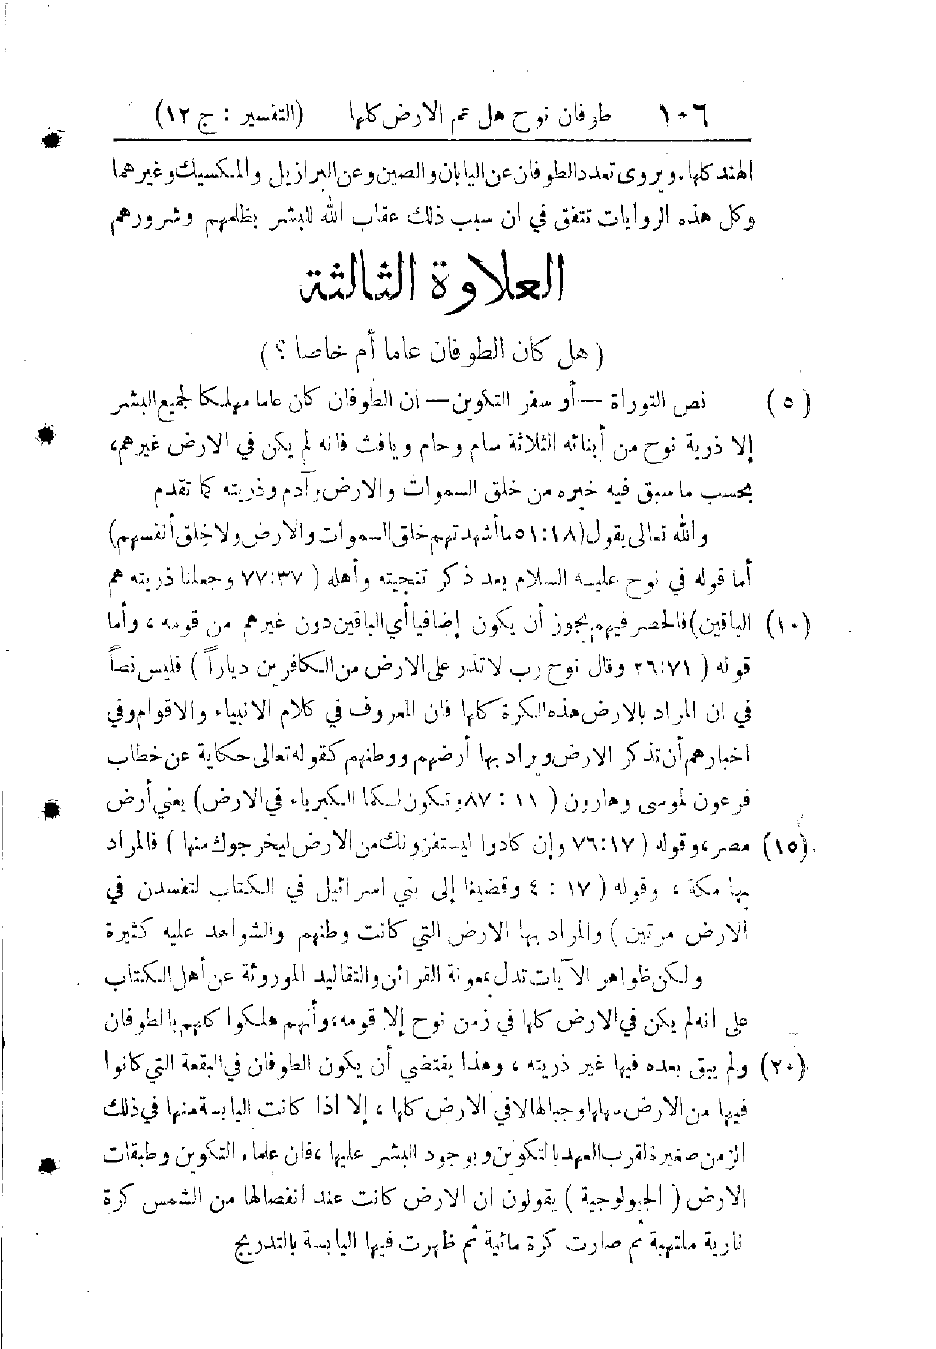 ١٠٦ طوفان نوح هل عم الارض كلها (التفسير : ج ١٢)
الهند كلها. ويروى تعدد الطوفان عن اليابان والصين وعن البرازيل والمكسيك وغيرهما
وكل هذه الروايات تتفق في ان سبب ذلك عقاب الله للبشر بظلمهم وشرورهم
العلاوة الثالثة
( هل كان الطوفان عاما أم خاصا ؟ )
(٥) نص التوراة — أو سفر التكوين — ان الطوفان كان عاما مهلكا لجميع البشر
إلا ذرية نوح من أبنائه الثلاثة سام وحام ويافث فانه لم يكن في الارض غيرهم،
بحسب ما سبق فيه خبره من خلق السموات والارض وآدم وذريته كما تقدم
والله تعالى يقول (٥١:١٨ ما أشهدتهم خلق السموات والارض ولا خلق أنفسهم)
أما قوله في نوح عليه السلام بعد ذكر تنجيته وأهله ( ٧٧:٣٧ وجعلنا ذريته هم
(١٠) الباقين) فالحصر فيهم يجوز أن يكون إضافيا أي الباقين دون غيرهم من قومه ، وأما
قوله ( ٢٦:٧١ وقال نوح رب لا تذر على الارض من الكافرين دياراً ) فليس نصاً
في ان المراد بالارض هذه الكرة كلها فان المعروف في كلام الانبياء والاقوام وفي
اخبارهم أن تذكر الارض ويراد بها أرضهم ووطنهم كقوله تعالى حكاية عن خطاب
فرعون لموسى وهارون ( ١١ : ٨٧ وتكون لكما الكبرياء في الارض) يعني أرض
(١٥) مصر، وقوله ( ٧٦:١٧ وإن كادوا ليستفزونك من الارض ليخرجوك منها ) فالمراد
بها مكة ، وقوله ( ١٧ : ٤ وقضينا إلى بني اسرائيل في الكتاب لتفسدن في
الارض مرتين ) والمراد بها الارض التي كانت وطنهم والشواهد عليه كثيرة
ولكن ظواهر الآيات تدل بمعونة القرائن والتقاليد الموروثة عن أهل الكتاب
على انه لم يكن في الارض كلها في زمن نوح إلا قومه، وأنهم هلكوا كلهم بالطوفان
(٢٠) ولم يبق بعده فيها غير ذريته ، وهذا يقتضي أن يكون الطوفان في البقعة التي كانوا
فيها من الارض سهلها وجبالها لا في الارض كلها ، إلا اذا كانت اليابسة منها في ذلك
الزمن صغيرة لقرب العهد بالتكوين وبوجود البشر عليها ، فان علماء التكوين وطبقات
الارض ( الجيولوجية ) يقولون ان الارض كانت عند انفصالها من الشمس كرة
نارية ملتهبة ثم صارت كرة مائية ثم ظهرت فيها اليابسة بالتدريج